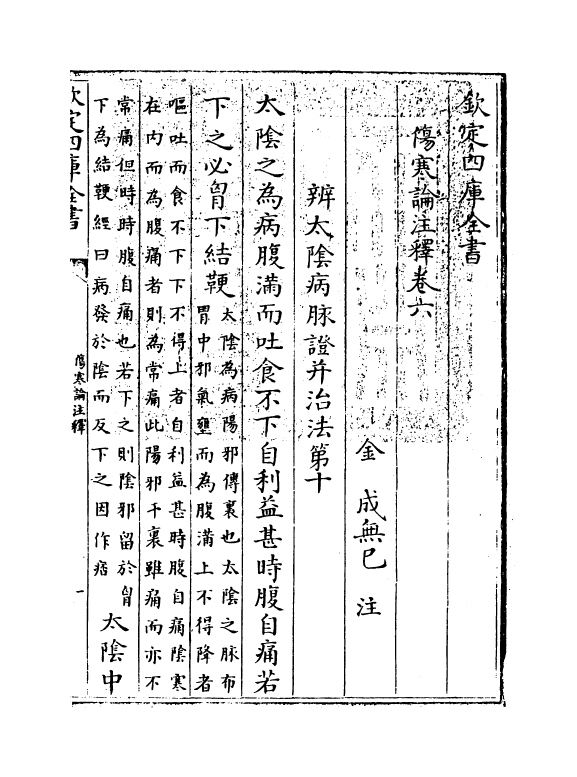 欽定四庫全書
傷寒論注釋卷六
金 成無巳 注
辨太陰病脉證并治法第十
太陰之為病腹滿而吐食不下自利益甚時腹自痛若
下之必胷下結鞕
太陰為病陽邪傳裏也太陰之脉布
胃中邪氣壅而為腹滿上不得降者
嘔吐而食不下下不得上者自利益甚時腹自痛陰寒
在内而為腹痛者則為常痛此陽邪干裏雖痛而亦不
常痛但時時腹自痛也若下之則陰邪留於胷
下為結鞕經曰病發於陰而反下之因作痞
太陰中
欽定四庫全書
傷寒論注釋
一